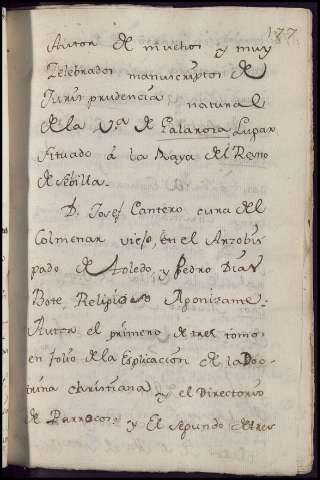 187
Autor de muchos y muy
Zelebrados manuscriptos de
Jurisprudencia natural
de la V.ª de Palaroia Lugar
situado á la Raya del Reyno
de sebilla.
D. Josef Cantero cura del
Colmenar viejo, en el Arzobis
pado de Toledo, y Pedro Dias
Bote, Religioso
Autor el primero de tres tomos
en folio de la Esplicación de la Doc-
trina christiana y el Directorio
de Parrocos: y el segundo de tres